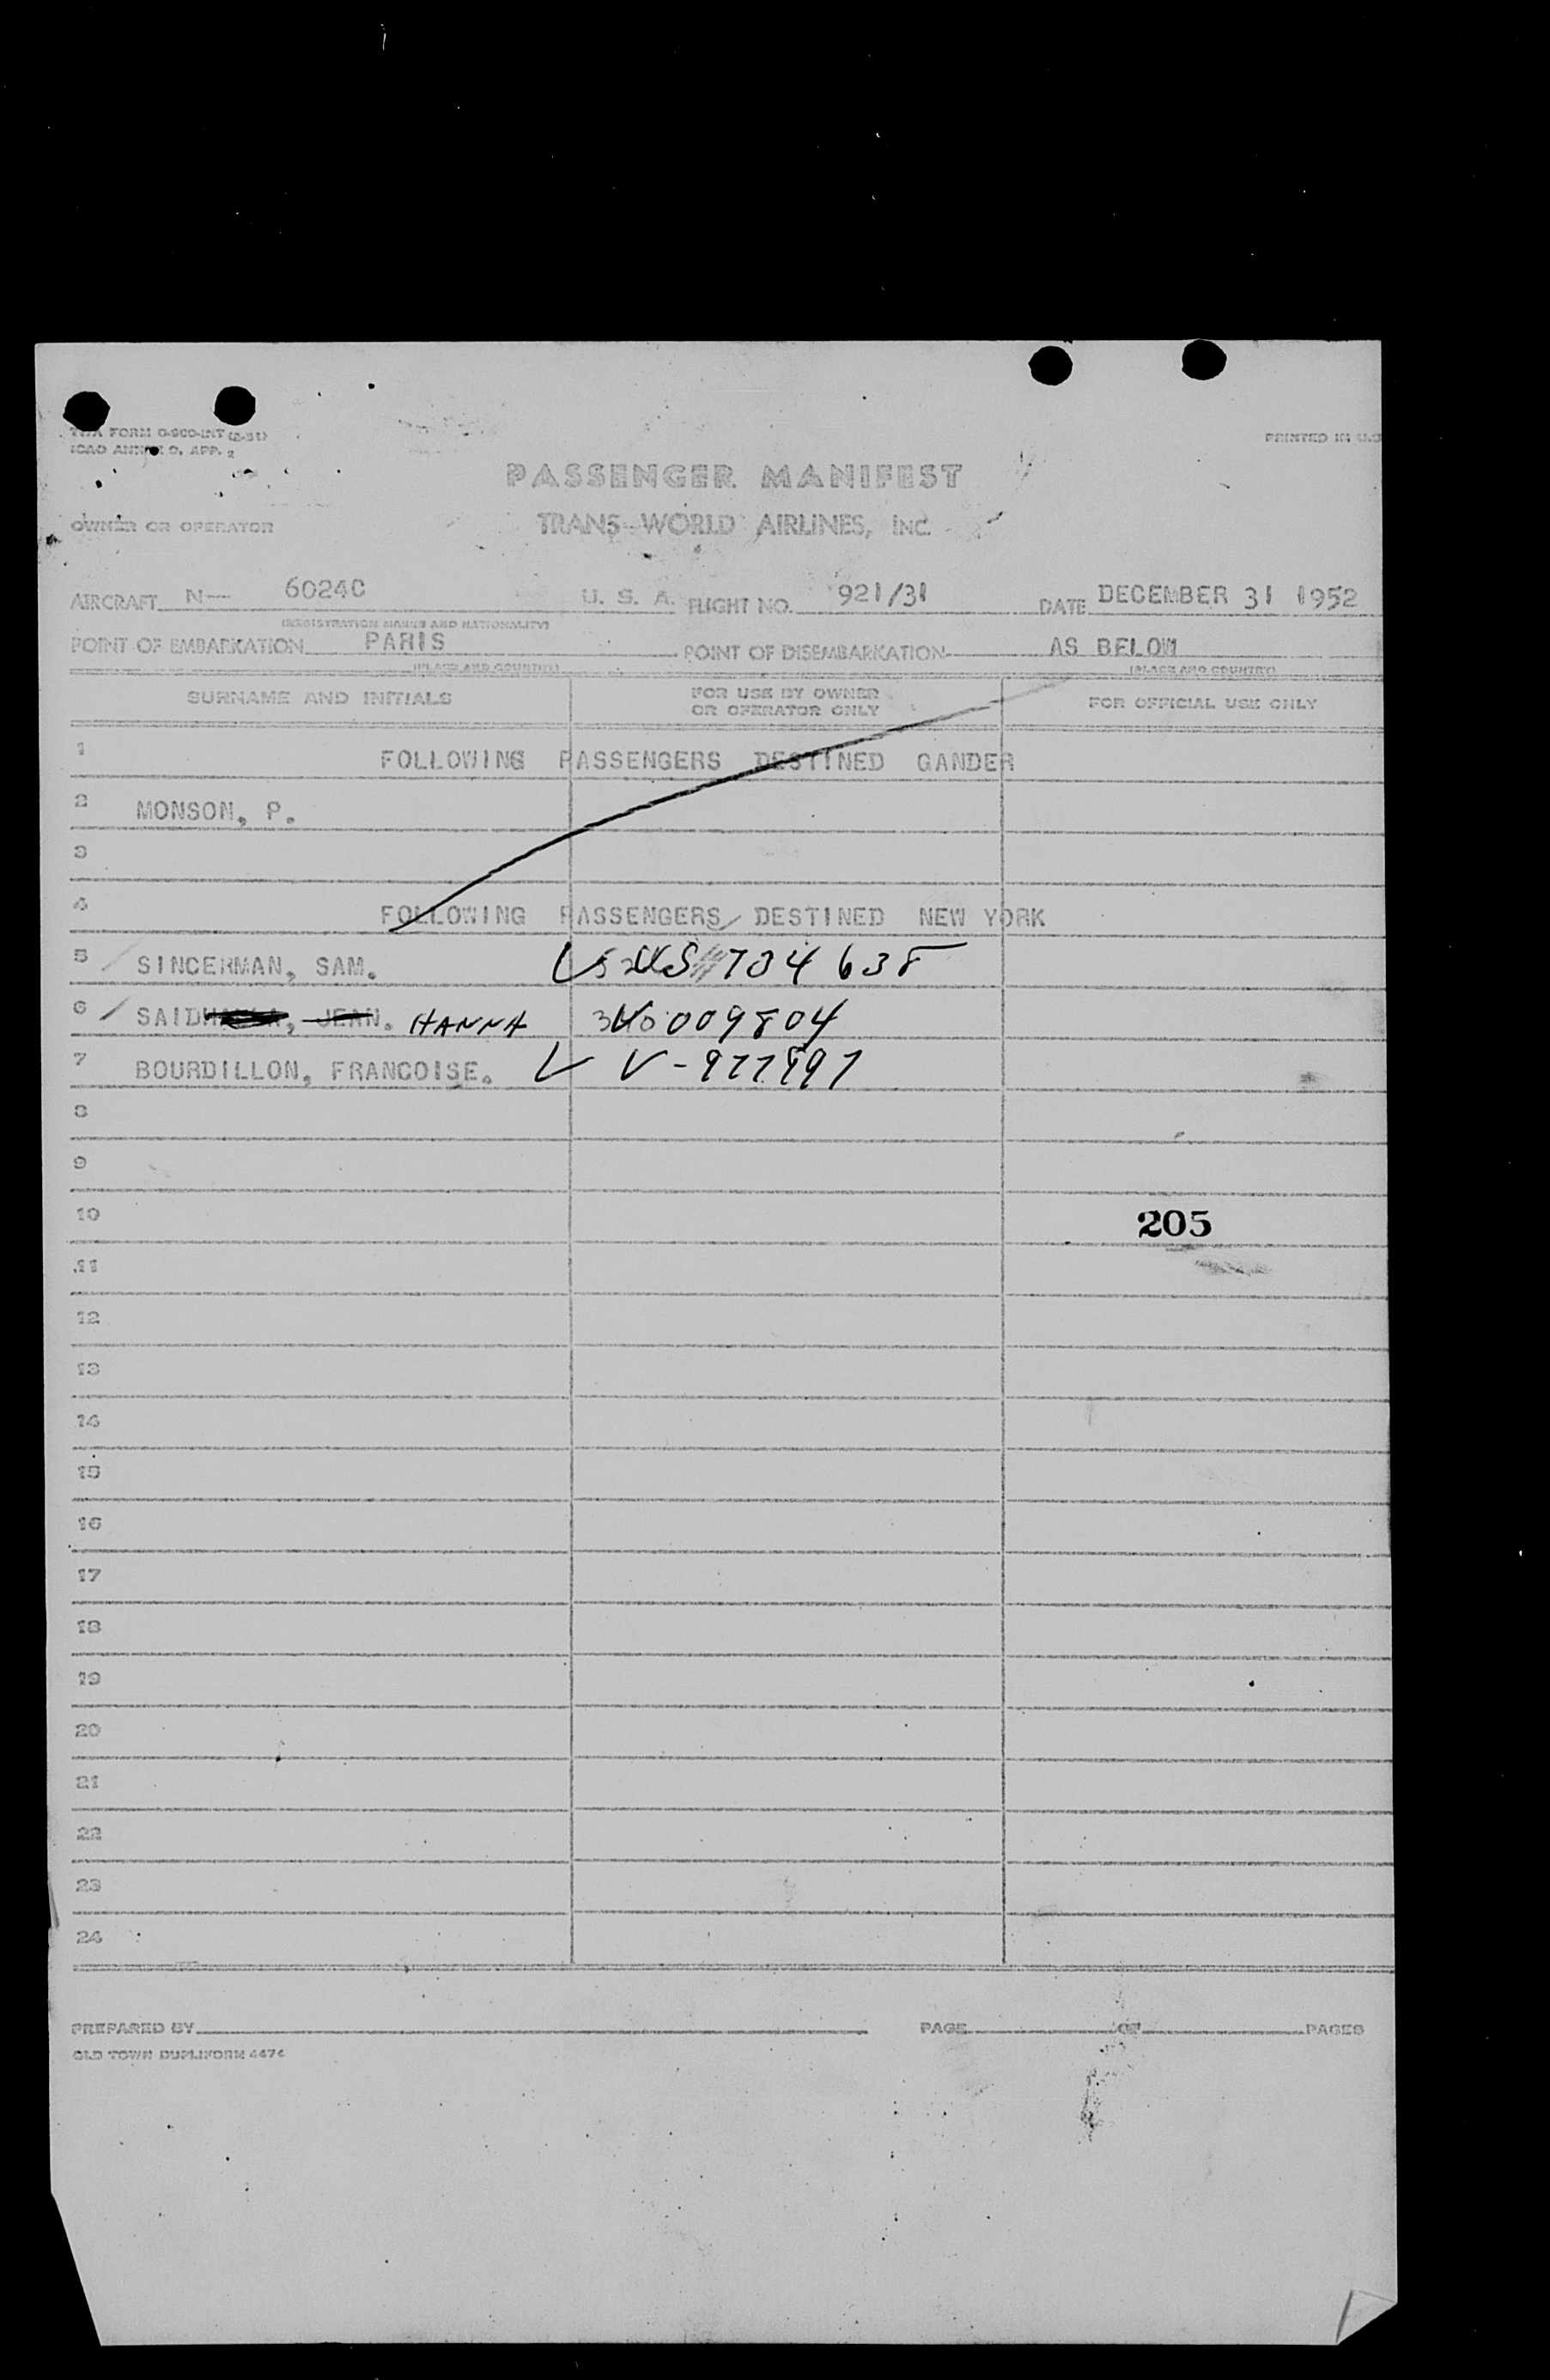 TWA FORM O-900-INT (2-51)
ICAO ANNEX 9, APP. 2
PRINTED IN U.S
PASSENGER MANIFEST
OWNER OR OPERATOR TRANS WORLD AIRLINES, INC.
AIRCRAFT N— 6024C U. S. A. FLIGHT NO. 921/31 DATE DECEMBER 31 1952
(REGISTRATION MARKS AND NATIONALITY)
POINT OF EMBARKATION PARIS POINT OF DISEMBARKATION AS BELOW
(PLACE AND COUNTRY) (PLACE AND COUNTRY)
SURNAME AND INITIALS FOR USE BY OWNER OR OPERATOR ONLY FOR OFFICIAL USE ONLY
1 FOLLOWING PASSENGERS DESTINED GANDER
2 MONSON, P.
3
4 FOLLOWING PASSENGERS DESTINED NEW YORK
5 SINCERMAN, SAM. 704638
6 SAID JEAN. HANNA 009804
7 BOURDILLON, FRANCOISE. V-977997
8
9
10 205
11
12
13
14
15
16
17
18
19
20
21
22
23
24
PREPARED BY PAGE OF PAGES
OLD TOWN DUPLIFORM 4474